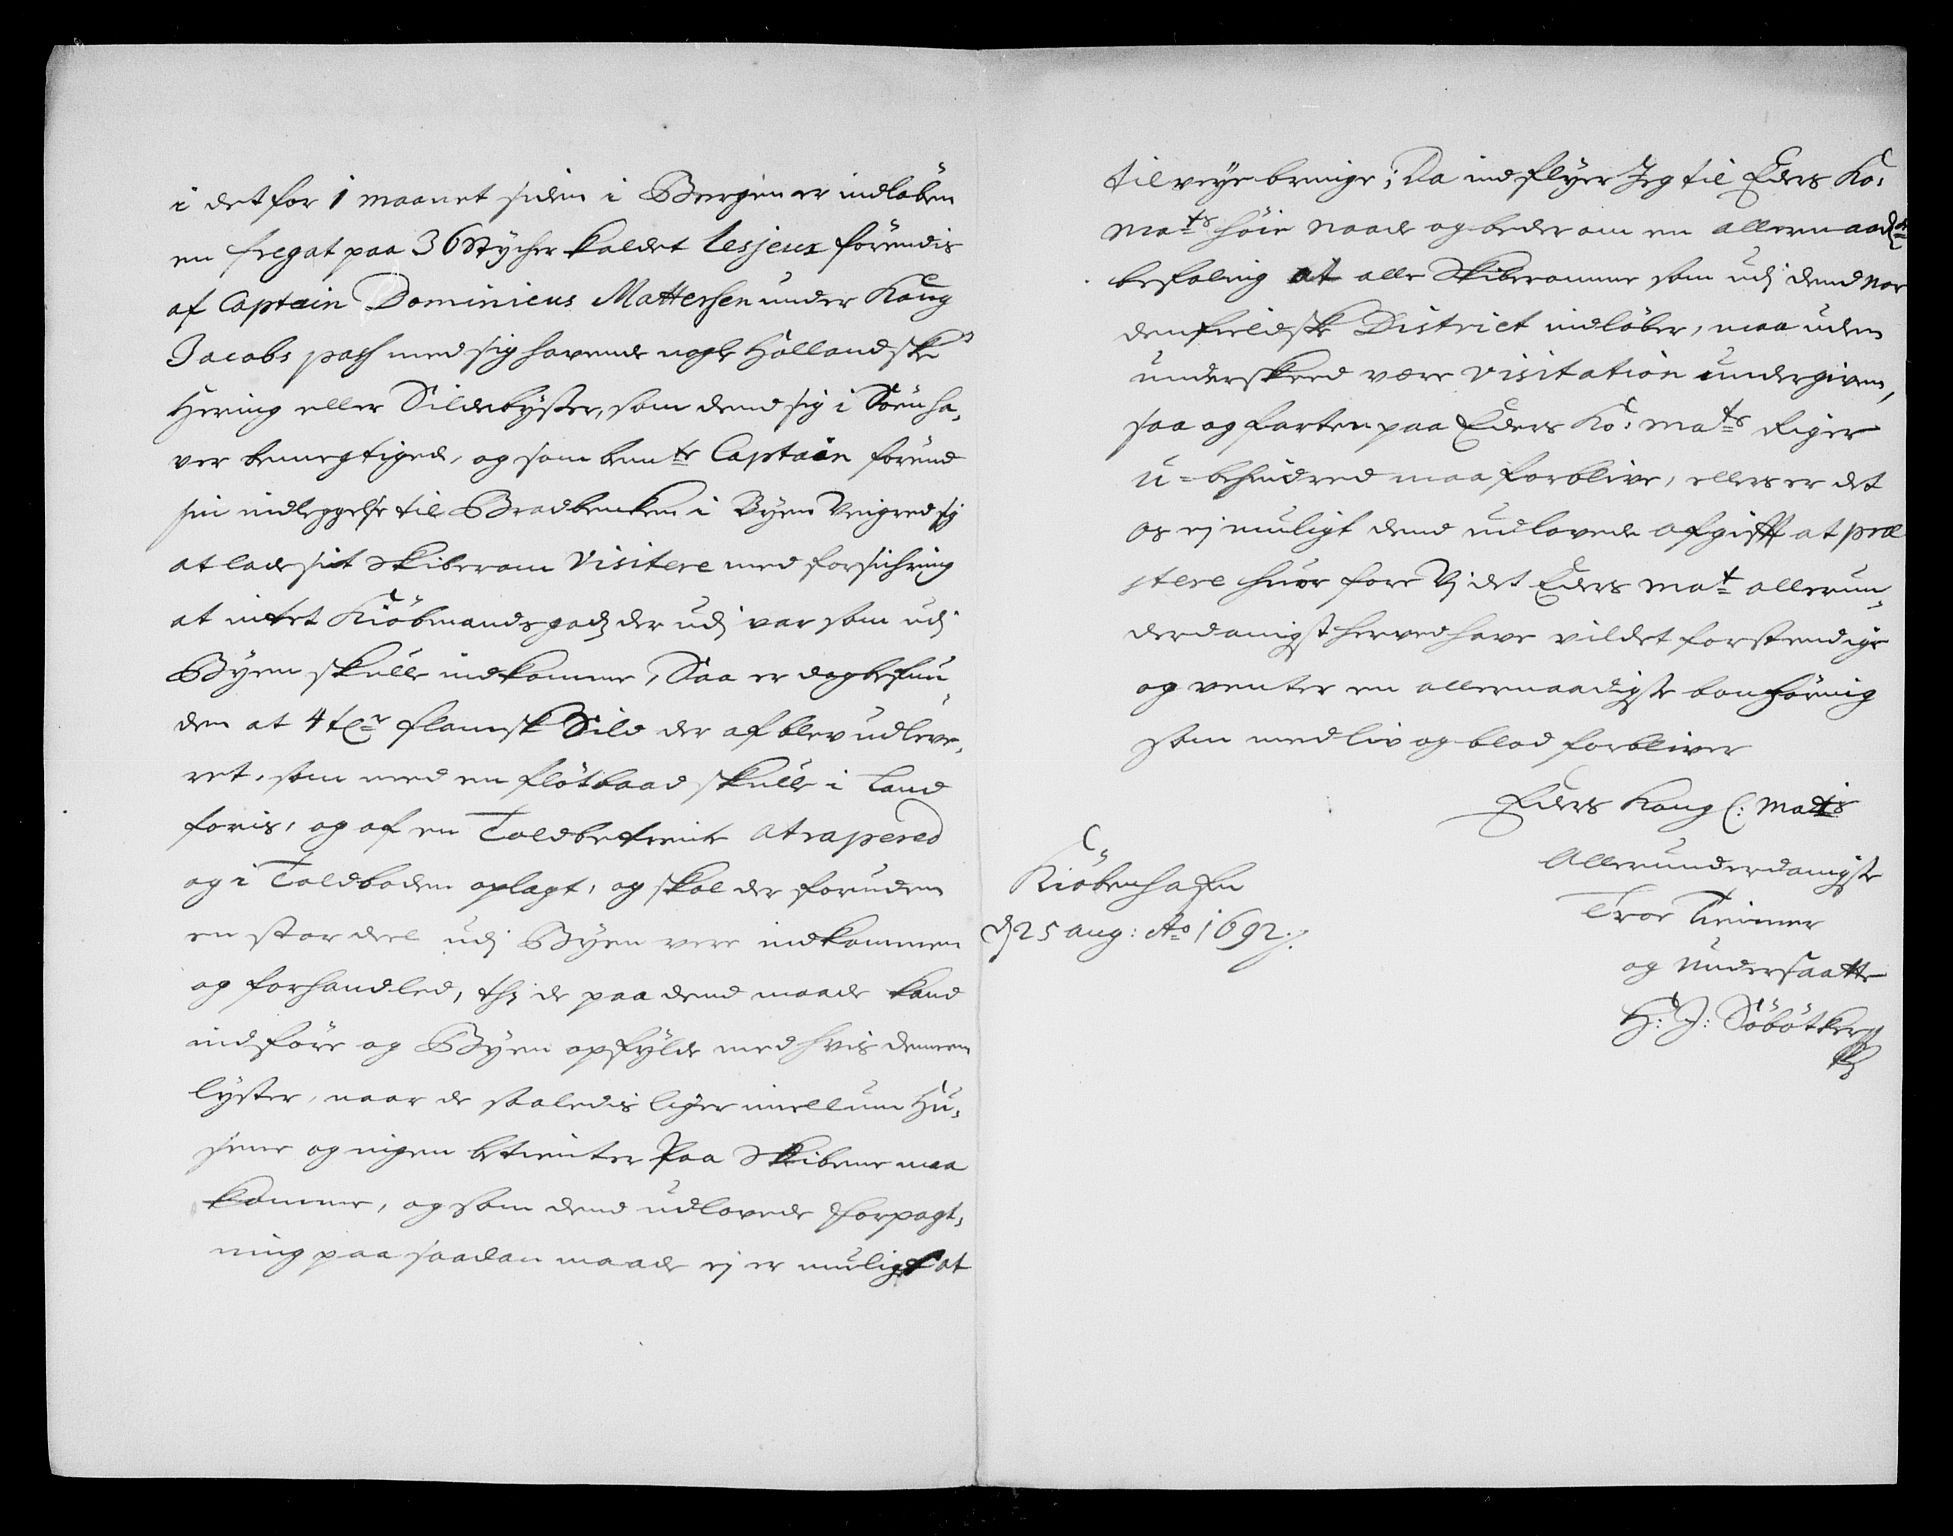 i det for 1 maanet siden i Bergen er indløben
en fregat paa 36 stycher kaldet Lesjeux førendis
af Captein Dominicus Mattersen under Kong
Jacobs pass med sig havende nogle Hollandske
Hering eller Silde byster, som dend sig i Søen ha„
ver bemegtiged, og som bem:te Captain forend
sin indleggelse til Bradbencken i Byen Veigred sig
at lade sit Skiberom Visitere med forsichring
at intet Kiöbmandsgods der udj var som udj
Byen skulle indkomme, Saa er dog befun„
den at 4 tr flamsk Sild der af blev udleve„
ret, som med en flötbaad skulle i Land
føris, og af en Toldbetient atrapered
og i Toldboden oplagt, og skal der foruden
en stor deel udj Byen vere indkommen
og forhandled, thj de paa dend maade kand
indföre og Byen opfylde med hvis dennem
lyster, naar de saaledis liger imellum Hu„
sene og ingen betienter Paa Skibene maa
komme, og som dend udlovede Forpagt„
ning paa saadan maade ej er muligt at
tilveye bringe; Da indflyer Jeg til Eders Ko:
Mats høie Naade og beder om en allernaadste
befaling at alle Skiberomme som udj dend Nor
denfieldske District indløber, maa uden
underskeed være Visitation undergiven,
saa og farten paa Eders Ko: Mats Riger
u-behindred maa forblive, ellers er det
os ej muligt dend udlovede afgifft at præ
stere huor fore Vj det Eders Mat allerun„
derdanigst herved have vildet forstendige
og venter en allernaadigste bonhöring
som med liv og blod forbliver
Eders Kong l: Mats
Allerunderdanigste
Troe Tienner
og Undersaatte
H: J: Söbötker
Kiöbenhafn
d 25 Aug: Ao 1692